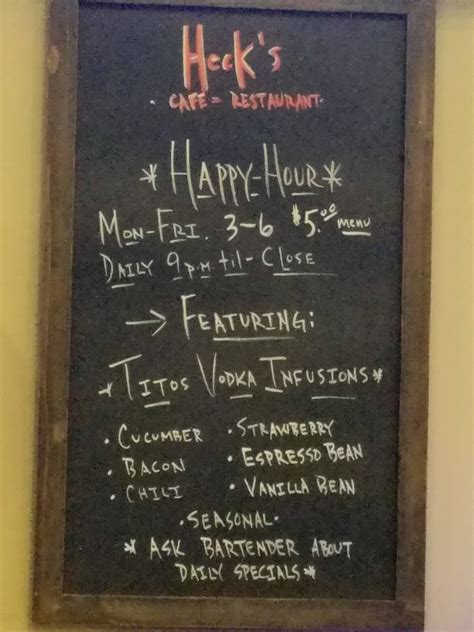 Heck's
• CAFE = RESTAURANT •
* HAPPY-HOUR *
MON-FRI. 3-6 $5.00 menu
DAILY 9 p.m. til - CLOSE
→ FEATURING:
* TITOS VODKA INFUSIONS *
• CUCUMBER • STRAWBERRY
• BACON • ESPRESSO BEAN
• CHILI • VANILLA BEAN
• SEASONAL •
* ASK BARTENDER ABOUT
DAILY SPECIALS *